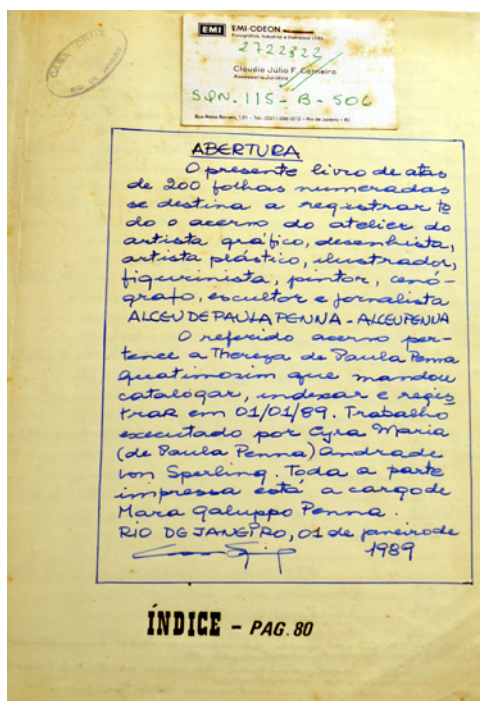 CASA CRUZ
RIO DE JANEIRO
EMI
EMI-ODEON
Fonográfica, Industrial e Comercial LTDA.
2722822
Claudio Júlio F. Carneiro
Assessoria Jurídica
SQN. 115 - B - 506
Rio de Janeiro - RJ
ABERTURA
O presente livro de atas
de 200 folhas numeradas
se destina a registrar to
do o acervo do atelier do
artista gráfico, desenhista,
artista plástico, ilustrador,
figurinista, pintor, cenó-
grafo, escultor e jornalista
ALCEU DE PAULA PENNA - ALCEU PENNA
O referido acervo per-
tence a Thereza de Paula Penna
Quatimosim que mandou
catalogar, indexar e regis
trar em 01/01/89. Trabalho
executado por Cyra Maria
(de Paula Penna) Andrade
von Sperling. Toda a parte
impressa está a cargo de
Mara Galuppo Penna.
RIO DE JANEIRO, 01 de janeiro de
1989
ÍNDICE - PAG. 80